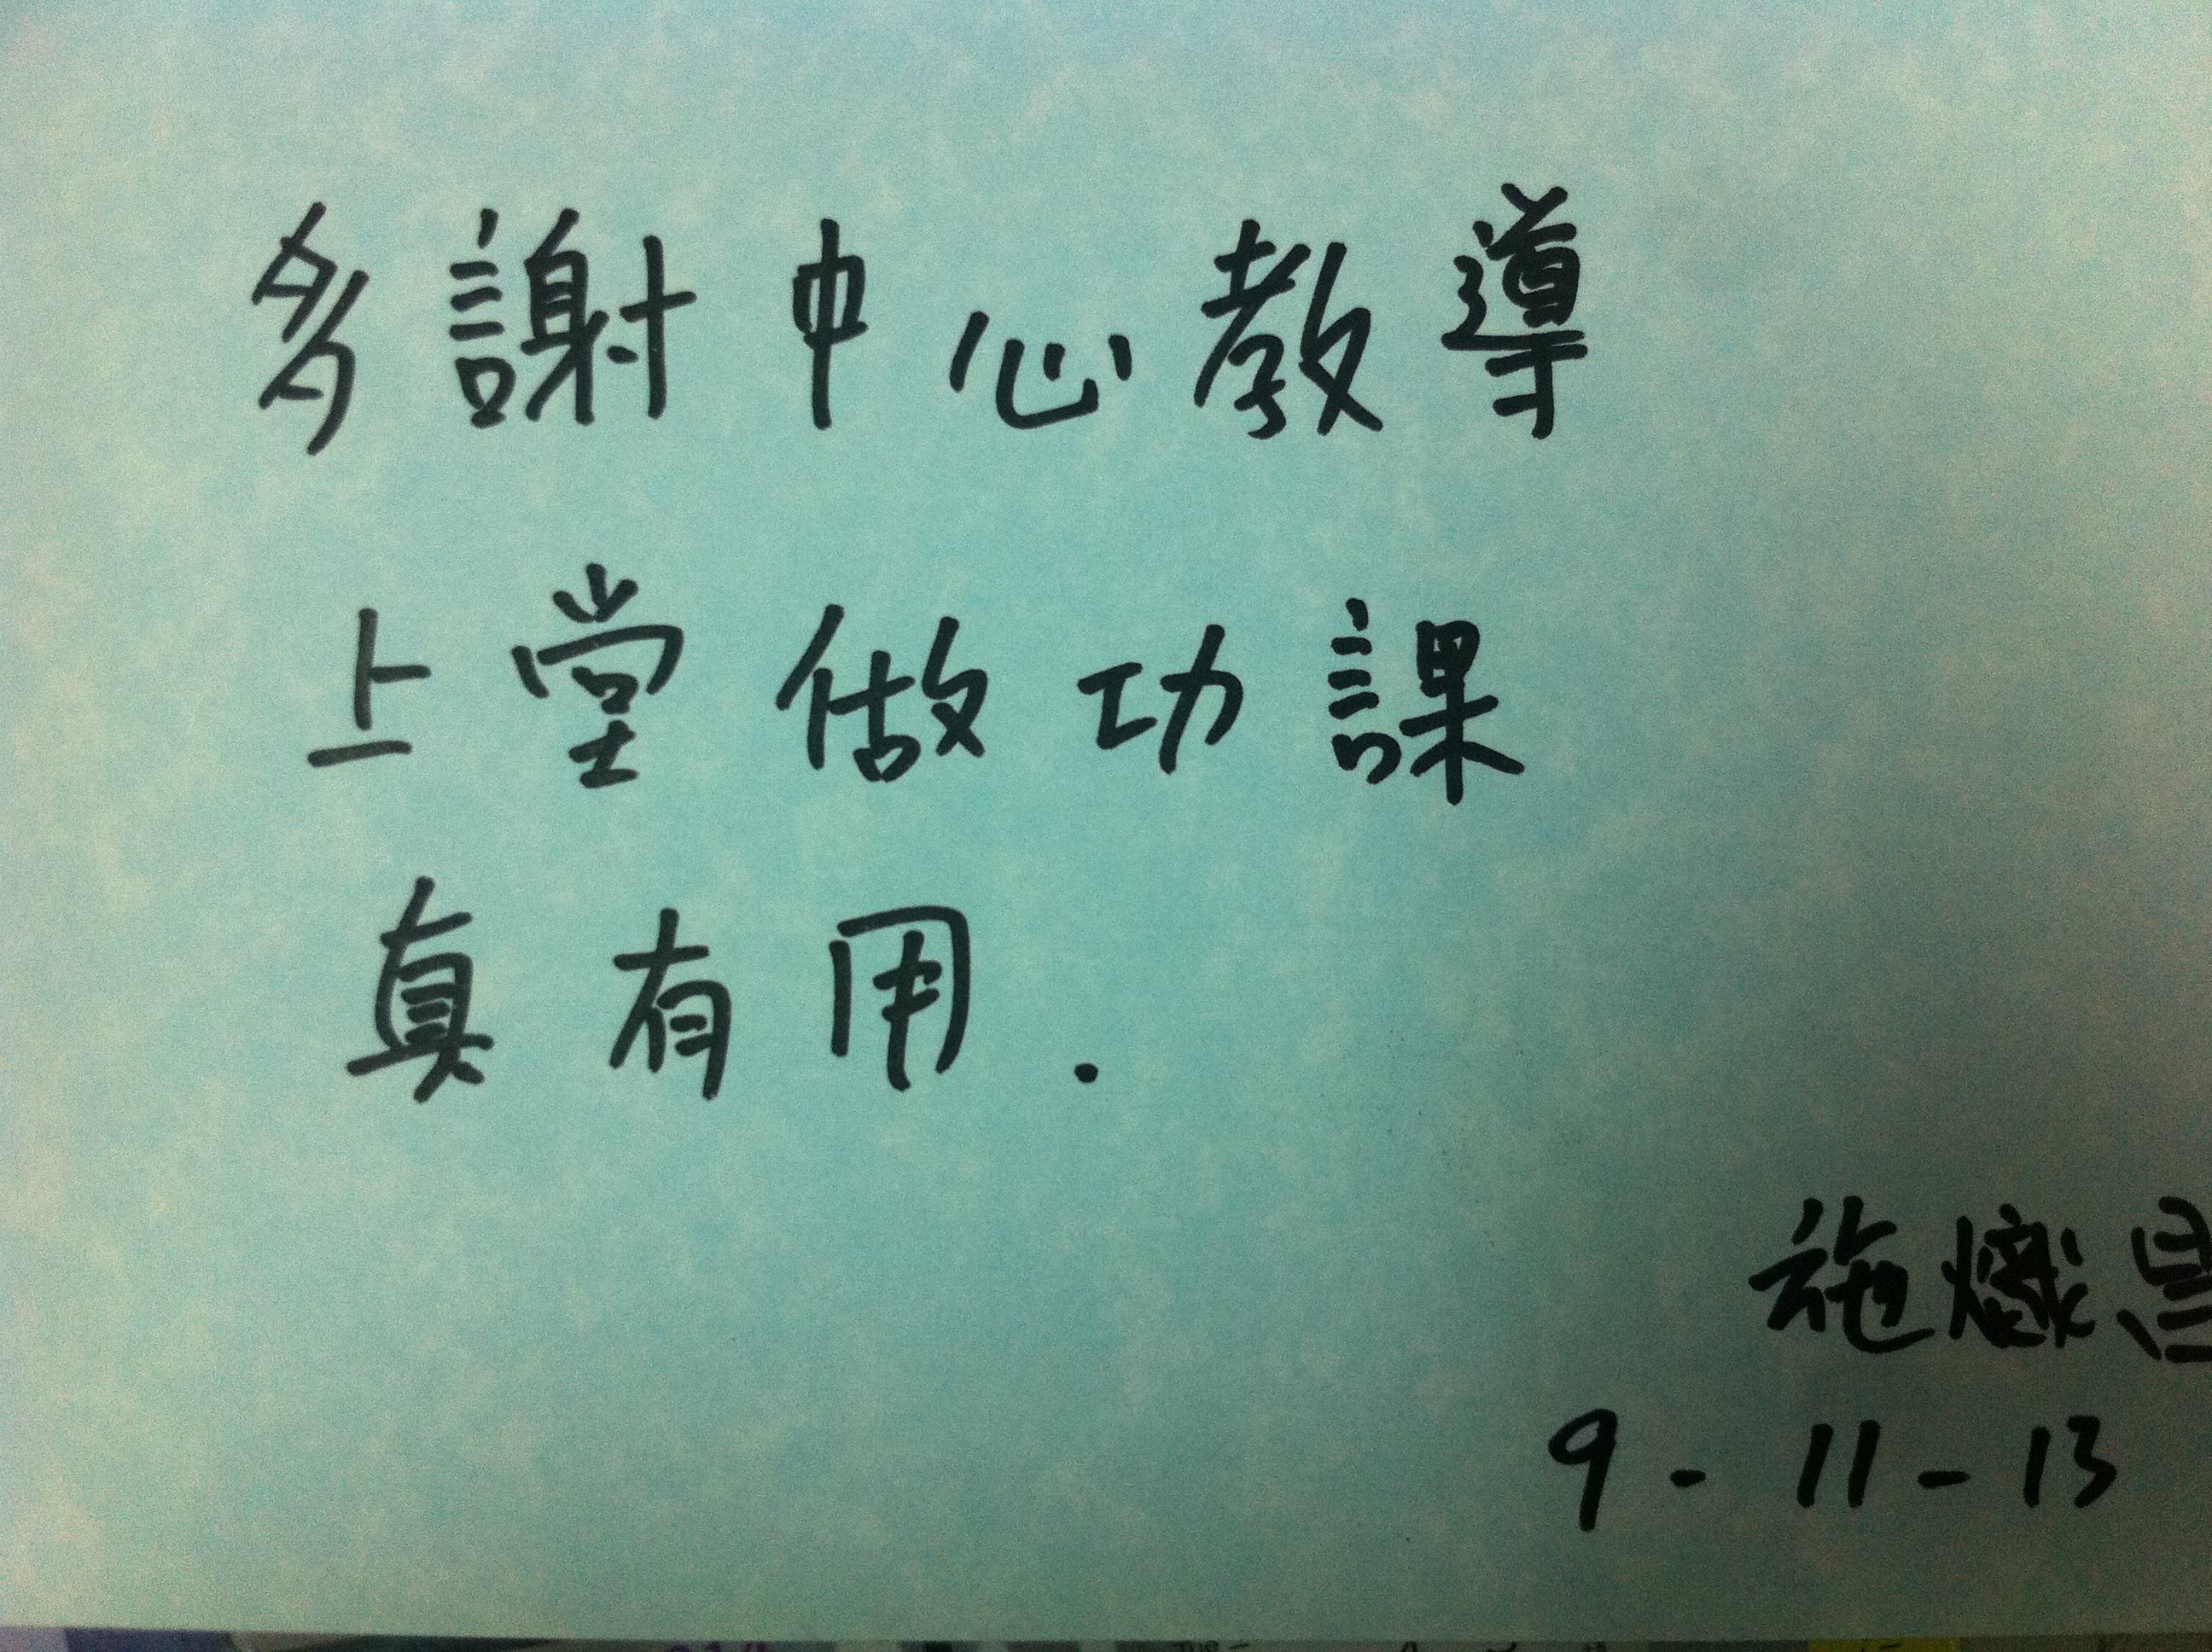 多謝中心教導
上堂做功課
真有用.
施熾昌
9-11-13